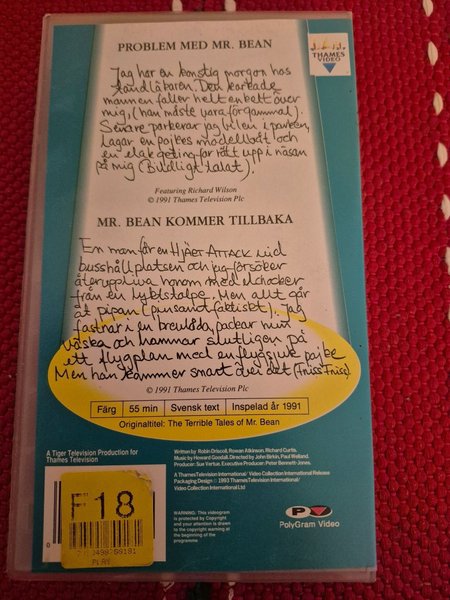 PROBLEM MED MR. BEAN
THAMES
VIDEO
Jag har en konstig morgon hos
tandläkaren. Den korkade
mannen faller helt enkelt över
mig, (han måste vara förgammal).
Senare parkerar jag bilen i parken,
lagar en pojkes modellbåt och
en elak geting far rätt upp i näsan
på mig (Bildligt talat).
Featuring Richard Wilson
© 1991 Thames Television Plc
MR. BEAN KOMMER TILLBAKA
En man får en HJÄRT ATTACK vid
busshållplatsen och jag försöker
återuppliva honom med elchocker
från en lyktstolpe. Men allt går
åt pipan (rensant faktiskt). Jag
fastnar i en brevlåda, packar min
väska och hamnar slutligen på
ett flygplan med en flygsjuk pojke
Men han kommer smart över det (Friss Friss)
© 1991 Thames Television Plc
Färg 55 min Svensk text Inspelad år 1991
Originaltitel: The Terrible Tales of Mr. Bean
A Tiger Television Production for
Thames Television
Written by Robin Driscoll, Rowan Atkinson, Richard Curtis.
Music by Howard Goodall. Directed by John Birkin, Paul Weiland.
Producer: Sue Vertue. Executive Producer: Peter Bennett-Jones.
A Thames Television International/ Video Collection International Release
Packaging Design © 1993 Thames Television International/
Video Collection International Ltd
WARNING: This videogram
is protected by Copyright
and your attention is drawn
to the copyright warning at
the beginning of the
programme
F18
PolyGram Video